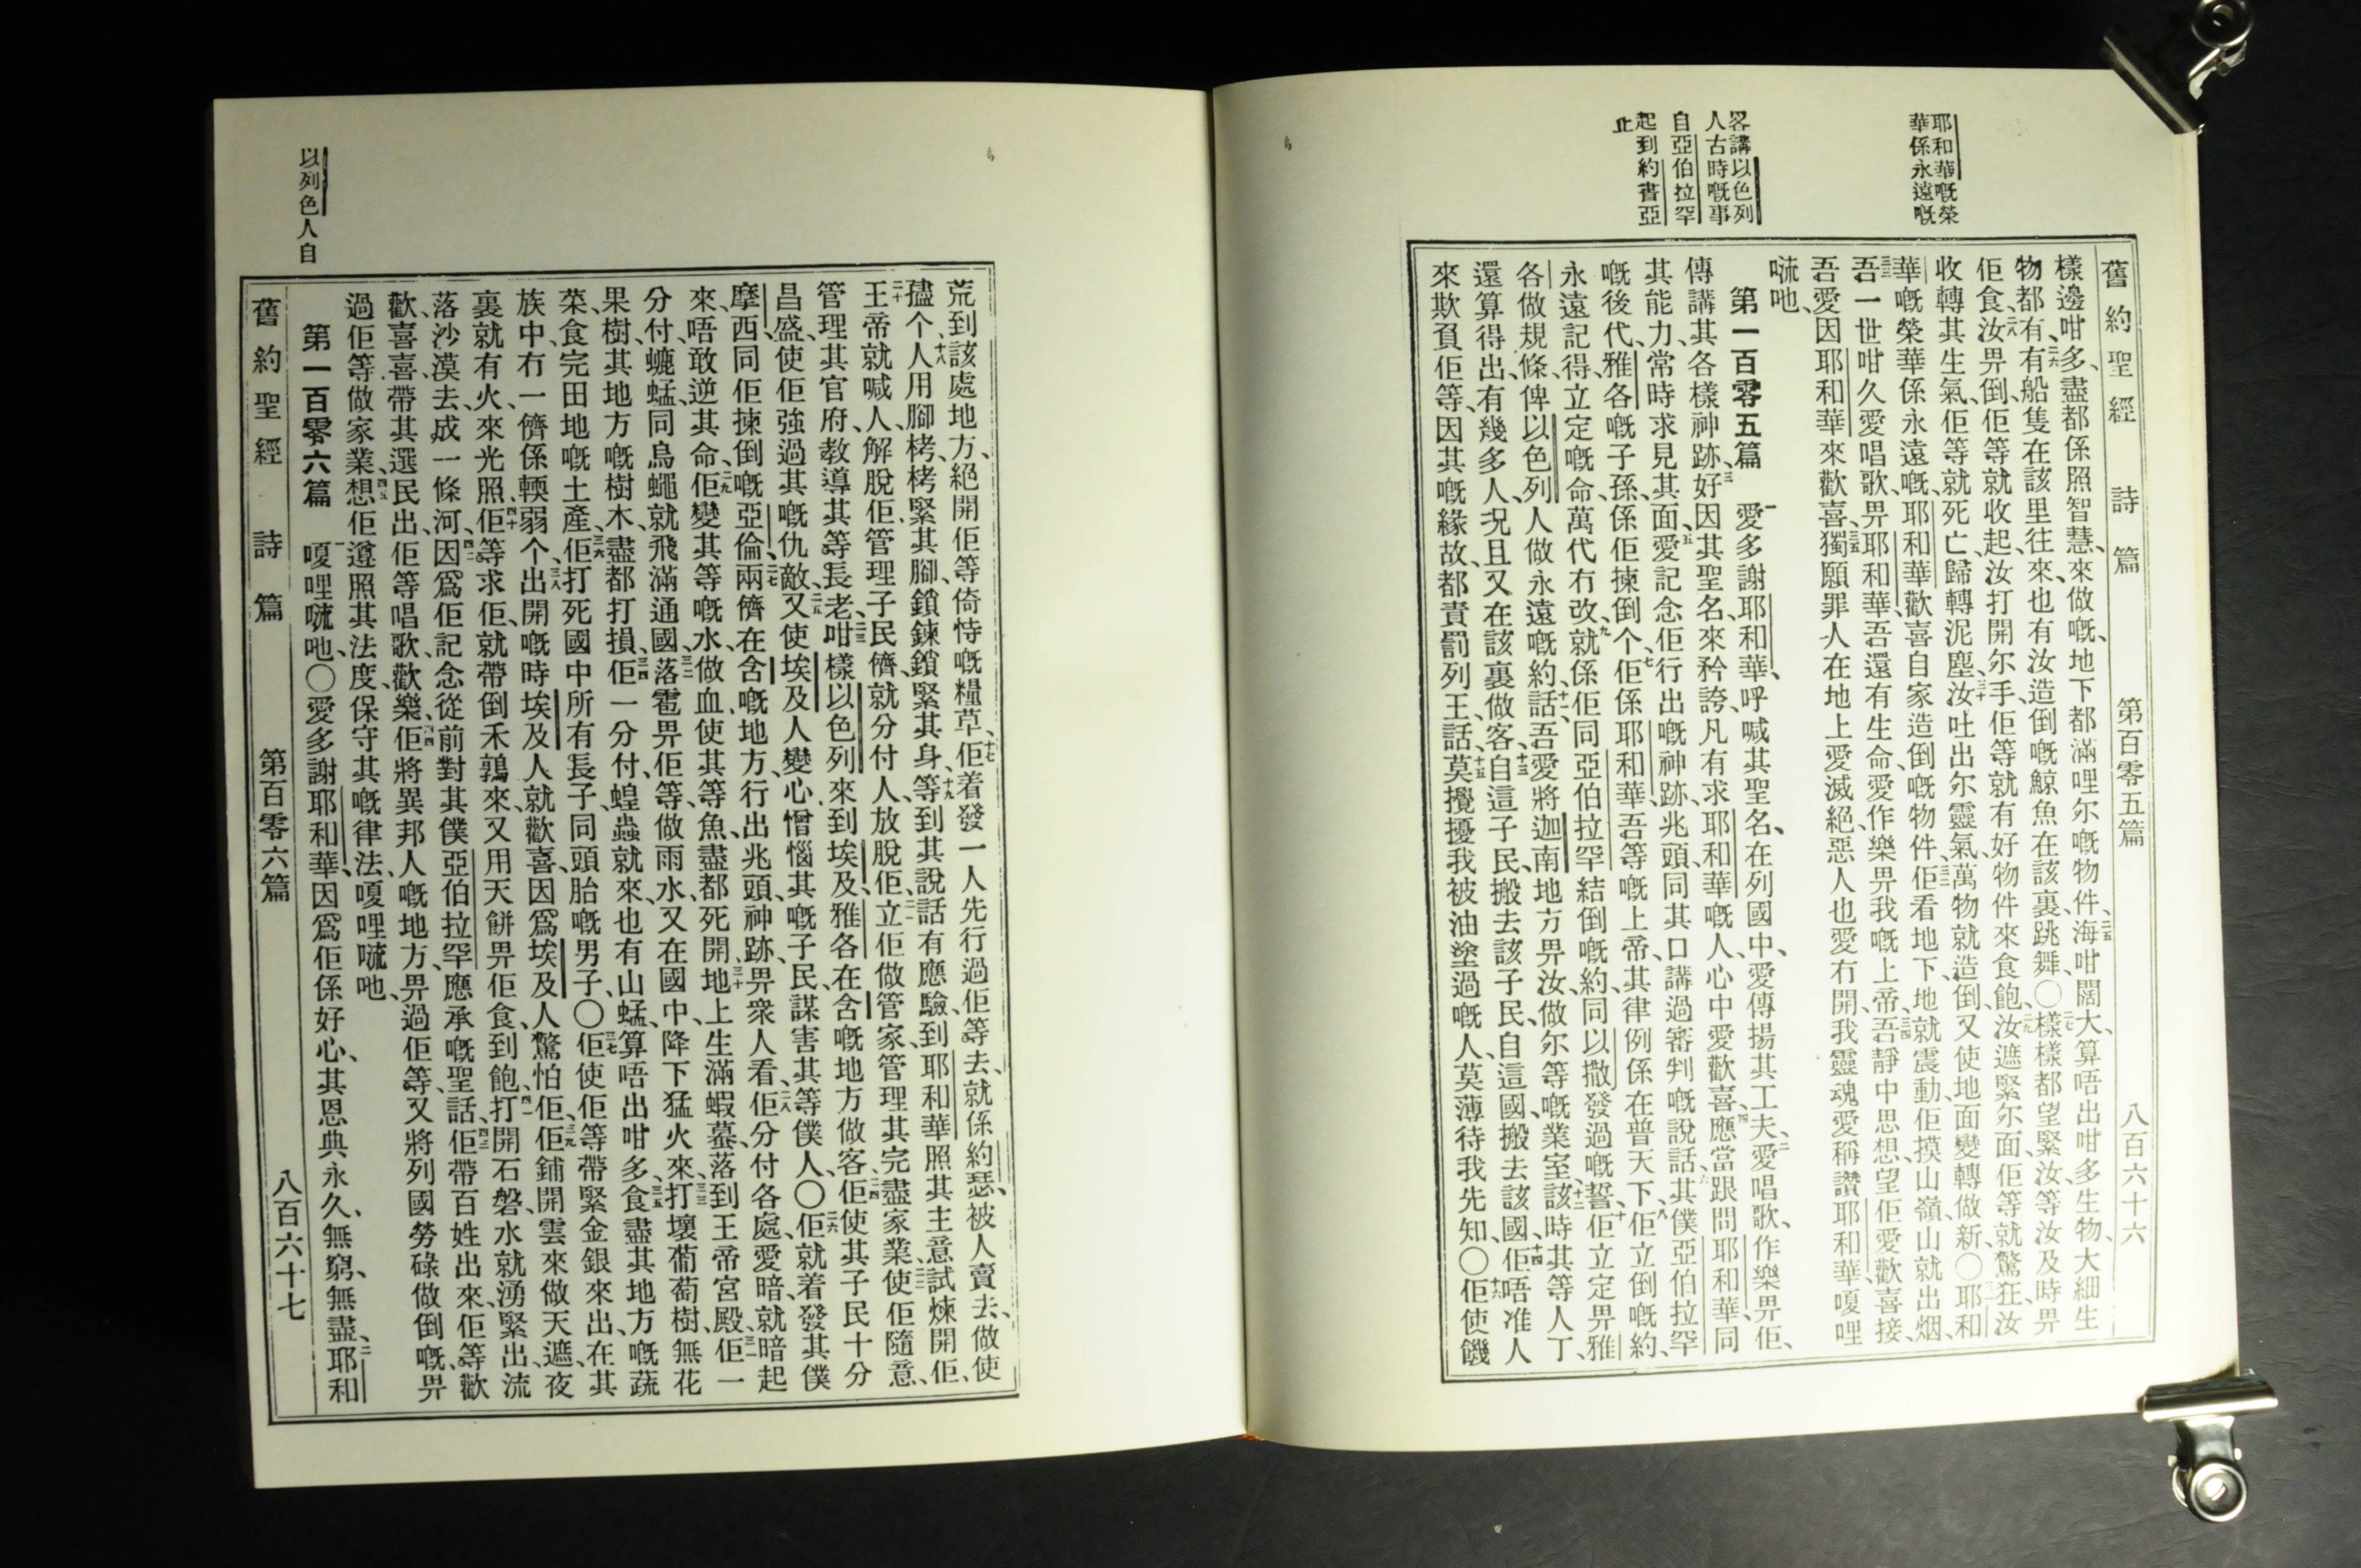 耶和華嘅榮
華係永遠嘅
畧講以色列
人古時嘅事
自亞伯拉罕
起到約書亞
止
舊約聖經 詩篇 第百零五篇 八百六十六
樣邊咁多、盡都係照智慧、來做嘅、地下都滿哩尔嘅物件、二五海咁闊大、算唔出咁多生物、大細生
物都有、二六有船隻在該里往來、也有汝造倒嘅鯨魚在該裏跳舞、〇二七樣樣都望緊汝、等汝及時畀
佢食、二八汝畀倒、佢等就收起、汝打開尔手、佢等就有好物件來食飽、二九汝遮緊尔面、佢等就驚狂、汝
收轉其生氣、佢等就死亡、歸轉泥塵、三十汝吐出尔靈氣、萬物就造倒、又使地面變轉做新、〇三一耶和
華嘅榮華係永遠嘅、耶和華歡喜自家造倒嘅物件、三二佢看地下、地就震動、佢摸山嶺、山就出烟、
三三吾一世咁久愛唱歌、畀耶和華、吾還有生命、愛作樂畀我嘅上帝、三四吾靜中思想、望佢愛歡喜接、
吾愛因耶和華來歡喜、三五獨願罪人在地上愛滅絕、惡人也愛冇開、我靈魂愛稱讚耶和華、嗄哩
㖫吔、
第一百零五篇 一愛多謝耶和華、呼喊其聖名、在列國中、愛傳揚其工夫、二愛唱歌、作樂畀佢、
傳講其各樣神跡、三好因其聖名、來矜誇、凡有求耶和華嘅人、心中愛歡喜、四應當跟問耶和華、同
其能力、常時求見其面、五愛記念佢行出嘅神跡、兆頭、同其口講過審判嘅說話、六其僕亞伯拉罕
嘅後代、雅各嘅子孫、係佢揀倒个、七佢係耶和華、吾等嘅上帝、其律例係在普天下、八佢立倒嘅約、
永遠記得、立定嘅命、萬代冇改、九就係佢同亞伯拉罕結倒嘅約、同以撒發過嘅誓、十佢立定畀雅
各做規條、俾以色列人做永遠嘅約、十一話、吾愛將迦南地方畀汝、做尔等嘅業室、十二該時其等人丁、
還算得出、有幾多人、况且又在該裏做客、十三自這子民、搬去該子民、自這國、搬去該國、十四佢唔准人
來欺負佢等、因其嘅緣故、都責罰列王、十五話、莫攪擾我被油塗過嘅人、莫薄待我先知、〇十六佢使饑
以列色人自
荒到該處地方、絕開佢等倚恃嘅糧草、十七佢着發一人先行過佢等去、就係約瑟、被人賣去、做使
𡥧个、十八人用腳栲、栲緊其腳、鎖鍊鎖緊其身、十九等到其說話有應驗、到耶和華照其主意試煉開佢、
二十王帝就喊人、解脫佢、管理子民儕、就分付人、放脫佢、二一立佢做管家、管理其完盡家業、二二使佢隨意
管理其官府、教導其等長老、二三咁樣以色列來到埃及、雅各在含嘅地方做客、二四佢使其子民十分
昌盛、使佢強過其嘅仇敵、二五又使埃及人變心憎惱其嘅子民、謀害其等僕人、〇二六佢就着發其僕
摩西、同佢揀倒嘅亞倫、二七兩儕在含嘅地方、行出兆頭、神跡、畀衆人看、二八佢分付各處、愛暗、就暗起
來、唔敢逆其命、二九佢變其等嘅水、做血、使其等魚、盡都死開、三十地上生滿蝦蟇、落到王帝宮殿、三一佢一
分付、螥蜢同烏蠅就飛滿通國、三二落雹畀佢等、做雨水、又在國中、降下猛火來、三三打壞葡萄樹、無花
果樹、其地方嘅樹木、盡都打損、三四佢一分付、蝗蟲就來、也有山蜢、算唔出咁多、三五食盡其地方嘅蔬
菜、食完田地嘅土產、三六佢打死國中所有長子、同頭胎嘅男子、〇三七佢使佢等帶緊金銀來出、在其
族中、冇一儕係輭弱个、三八出開嘅時、埃及人就歡喜、因爲埃及人驚怕佢、三九佢鋪開雲來做天遮、夜
裏就有火、來光照、四十佢等求佢、就帶倒禾鶉來、又用天餅畀佢食到飽、四一打開石磐、水就湧緊出、流
落沙漠去、成一條河、四二因爲佢記念從前對其僕亞伯拉罕、應承嘅聖話、四三佢帶百姓出來、佢等歡
歡喜喜、帶其選民出、佢等唱歌、歡樂、四四佢將異邦人嘅地方、畀過佢等、又將列國勞碌做倒嘅、畀
過佢等做家業、四五想佢遵照其法度、保守其嘅律法、嗄哩㖫吔、
第一百零六篇 一嗄哩㖫吔、〇愛多謝耶和華、因爲佢係好心、其恩典永久、無窮、無盡、二耶和
舊約聖經 詩篇 第百零六篇 八百六十七